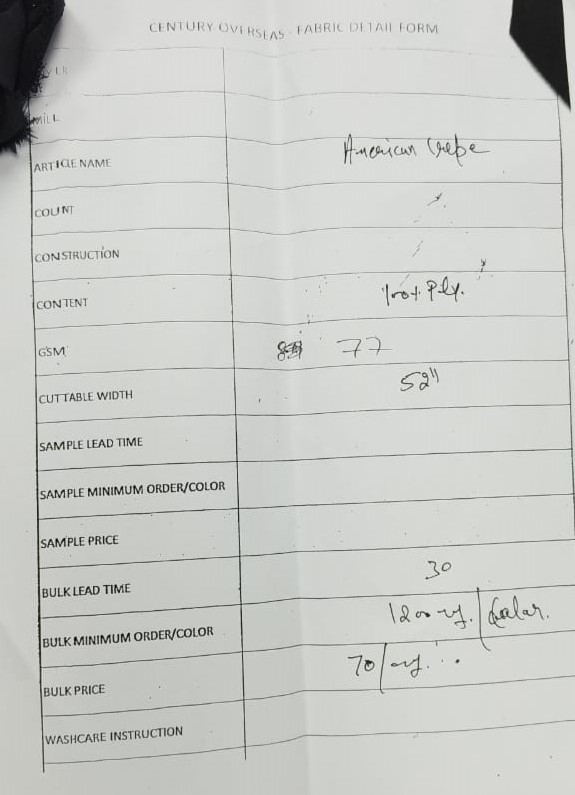 CENTURY OVERSEAS - FABRIC DETAIL FORM
MILL
ARTICLE NAME American Crepe
COUNT
CONSTRUCTION
CONTENT 100% Ply.
GSM 77
CUTTABLE WIDTH 52"
SAMPLE LEAD TIME
SAMPLE MINIMUM ORDER/COLOR
SAMPLE PRICE
BULK LEAD TIME 30
BULK MINIMUM ORDER/COLOR 1200 y. /
BULK PRICE 70/
WASHCARE INSTRUCTION